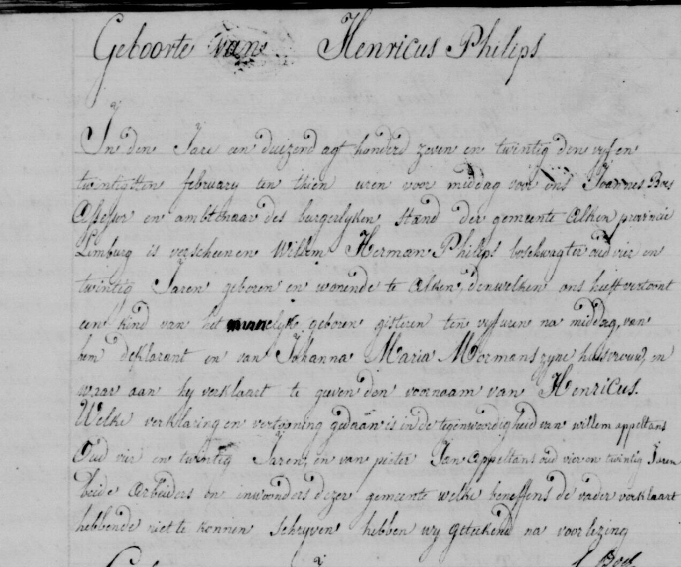 Geboorte van Henricus Philips
In den Jare een duizend agt honderd zeven en twintig den vyf en
twintigsten february ten thien uren voor middag voor ons Joannes Bos
Assessor en ambtenaar des burgerlyken stand der gemeente alken provincie
Limburg is verscheenen Willem Herman Philips boschwagter oud vier en
twintig Jaren geboren en wonende te Alken denwelken ons heeft vertoint
een kind van het mannelyke geboren gisteren ten vyf uren na middag, van
hem deklarant en van Johanna Maria Mormans zyne huisvrouw, en
waar aan hy verklaart te geven den voornaam van Henricus.
Welke verklaring en vertooning gedaan is in de tegenwoordigheid van willem appeltans
Oud vier en twintig Jaren, en van pieter Jan Appeltans oud vier en twintig Jaren
beide arbeiders en inwoonders dezer gemeente welke beneffens de vader verklaart
hebbende niet te konnen schryven hebben wy geteekend na voorlezing